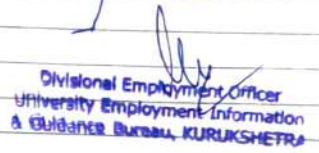 Divisional Employment Officer
University Employment Information
& Guidance Bureau, KURUKSHETRA